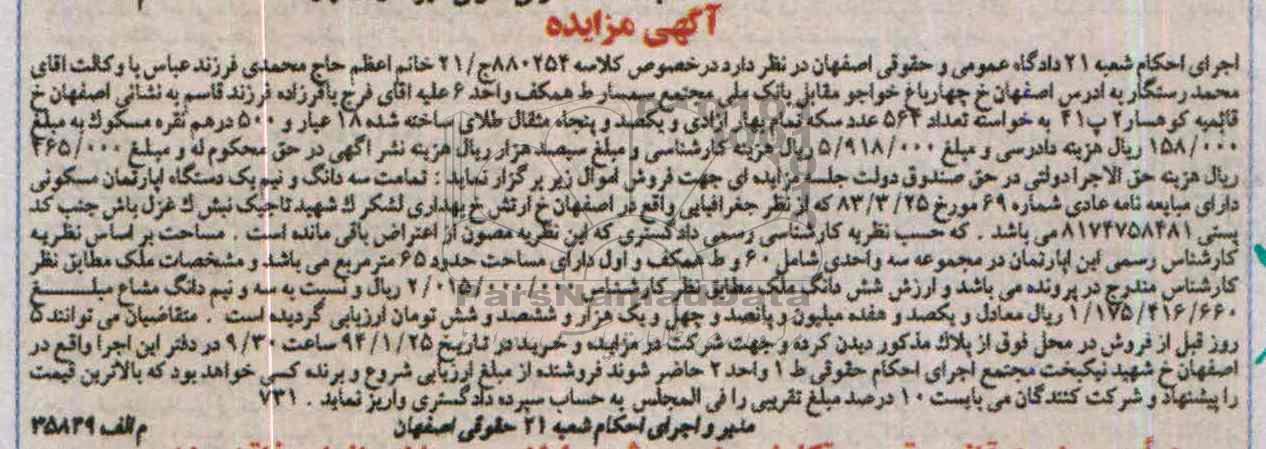 آگهی مزایده
اجرای احکام شعبه ۲۱ دادگاه عمومی و حقوقی اصفهان در نظر دارد در خصوص کلاسه ۸۸۰۲۵۴ج/۲۱ خانم اعظم حاج محمدی فرزند عباس با وکالت اقای
محمد رستگار به ادرس اصفهان خ چهارباغ خواجو مقابل بانک ملی مجتمع سمسار ط همکف واحد ۶ علیه اقای فرج باقرزاده فرزند قاسم به نشانی اصفهان خ
قائمیه کوهسار۲ پ۴۱ به خواسته تعداد ۵۶۴ عدد سکه تمام بهار ازادی و یکصد و پنجاه مثقال طلای ساخته شده ۱۸ عیار و ۵۰۰ درهم نقره مسکوک به مبلغ
۱۵۸/۰۰۰ ریال هزینه دادرسی و مبلغ ۵/۹۱۸/۰۰۰ ریال هزینه کارشناسی و مبلغ سیصد هزار ریال هزینه نشر اگهی در حق محکوم له و مبلغ ۴۶۵/۰۰۰
ریال هزینه حق الاجرا دولتی در حق صندوق دولت جلسه مزایده ای جهت فروش اموال زیر برگزار نماید : تمامت سه دانگ و نیم یک دستگاه اپارتمان مسکونی
دارای مبایعه نامه عادی شماره ۶۹ مورخ ۸۳/۳/۲۵ که از نظر جغرافیایی واقع در اصفهان خ ارتش خ بهداری لشکر ک شهید تاجیک نبش ک غزل باش جنب کد
پستی ۸۱۷۴۷۵۸۴۸۱ می باشد . که حسب نظریه کارشناسی رسمی دادگستری که این نظریه مصون از اعتراض باقی مانده است . مساحت بر اساس نظریه
کارشناس رسمی این اپارتمان در مجموعه سه واحدی شامل ۶۰ و ط همکف و اول دارای مساحت حدود ۶۵ متر مربع می باشد و مشخصات ملک مطابق نظر
کارشناس مندرج در پرونده می باشد و ارزش شش دانگ ملک مطابق نظر کارشناس ۲/۰۱۵/۰۰۰/۰۰۰ ریال و نسبت به سه و نیم دانگ مشاع مبلغ
۱/۱۷۵/۴۱۶/۶۶۰ ریال معادل و یکصد و هفده میلیون و پانصد و چهل و یک هزار و ششصد و شش تومان ارزیابی گردیده است . متقاضیان می توانند ۵
روز قبل از فروش در محل فوق از پلاک مذکور دیدن کرده و جهت شرکت در مزایده و خرید در تاریخ ۹۴/۱/۲۵ ساعت ۹/۳۰ در دفتر این اجرا واقع در
اصفهان خ شهید نیکبخت مجتمع اجرای احکام حقوقی ط ۱ واحد ۲ حاضر شوند فروشنده از مبلغ ارزیابی شروع و برنده کسی خواهد بود که بالاترین قیمت
را پیشنهاد و شرکت کنندگان می بایست ۱۰ درصد مبلغ تقریبی را فی المجلس به حساب سپرده دادگستری واریز نماید . ۷۳۱
مدیر و اجرای احکام شعبه ۲۱ حقوقی اصفهان م الف ۳۵۸۳۹
ParsNamadData